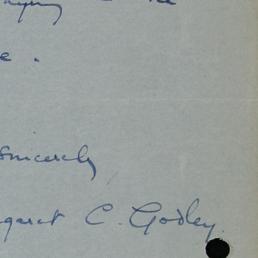 e.
sincerely
garet C. Godley.